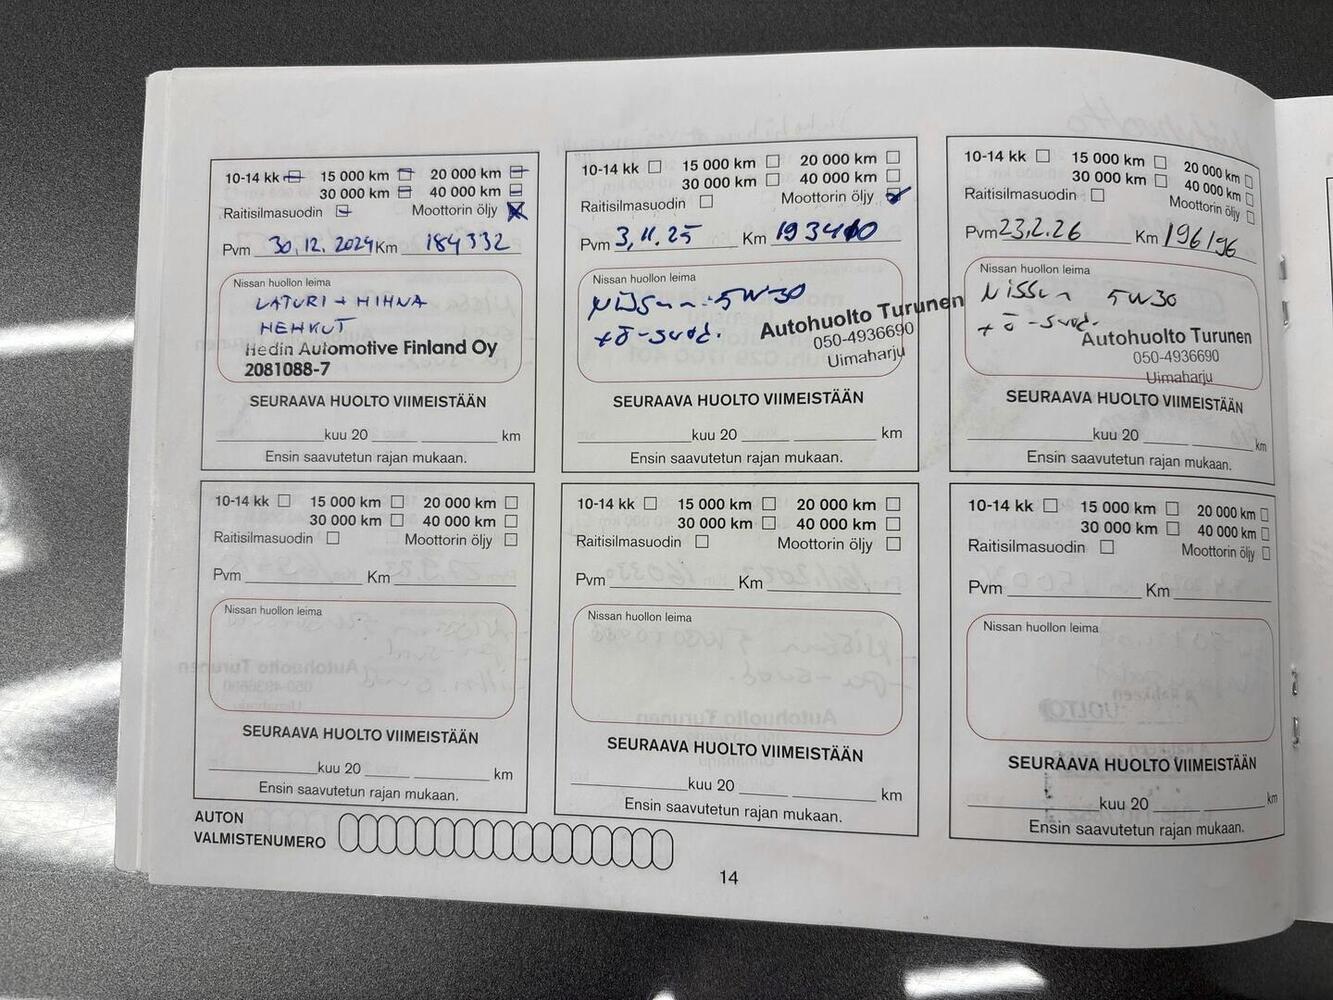 10-14 kk 15 000 km 20 000 km
30 000 km 40 000 km
Raitisilmasuodin Moottorin öljy
Pvm 30.12.2024 Km 184332
Nissan huollon leima
LATURI + HIHNA
HEHKUT
Hedin Automotive Finland Oy
2081088-7
SEURAAVA HUOLTO VIIMEISTÄÄN
kuu 20 km
Ensin saavutetun rajan mukaan.
10-14 kk 15 000 km 20 000 km
30 000 km 40 000 km
Raitisilmasuodin Moottorin öljy
Pvm 3.11.25 Km 193410
Nissan huollon leima
Nissan 5W-30
+ö-suod.
Autohuolto Turunen
050-4936690
Uimaharju
SEURAAVA HUOLTO VIIMEISTÄÄN
kuu 20 km
Ensin saavutetun rajan mukaan.
10-14 kk 15 000 km 20 000 km
30 000 km 40 000 km
Raitisilmasuodin Moottorin öljy
Pvm 23.2.26 Km 196196
Nissan huollon leima
Nissan 5W30
+ ö-suod.
Autohuolto Turunen
050-4936690
Uimaharju
SEURAAVA HUOLTO VIIMEISTÄÄN
kuu 20 km
Ensin saavutetun rajan mukaan.
10-14 kk 15 000 km 20 000 km
30 000 km 40 000 km
Raitisilmasuodin Moottorin öljy
Pvm Km
Nissan huollon leima
SEURAAVA HUOLTO VIIMEISTÄÄN
kuu 20 km
Ensin saavutetun rajan mukaan.
10-14 kk 15 000 km 20 000 km
30 000 km 40 000 km
Raitisilmasuodin Moottorin öljy
Pvm Km
Nissan huollon leima
SEURAAVA HUOLTO VIIMEISTÄÄN
kuu 20 km
Ensin saavutetun rajan mukaan.
10-14 kk 15 000 km 20 000 km
30 000 km 40 000 km
Raitisilmasuodin Moottorin öljy
Pvm Km
Nissan huollon leima
SEURAAVA HUOLTO VIIMEISTÄÄN
kuu 20 km
Ensin saavutetun rajan mukaan.
AUTON
VALMISTENUMERO
14